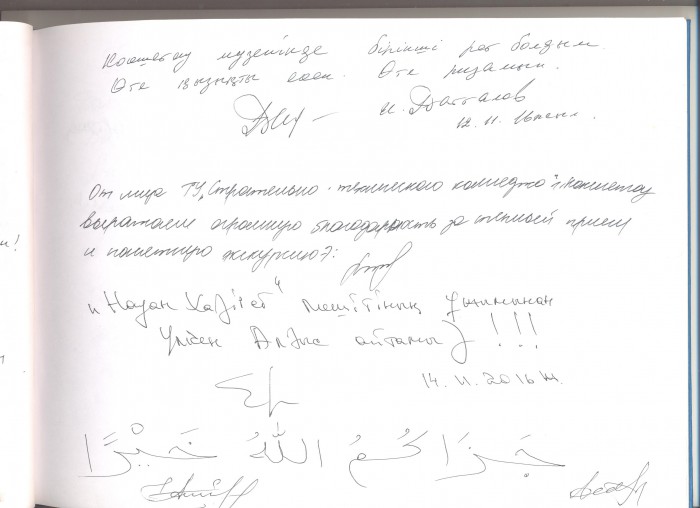 Көкшетау музейінде бірінші рет болдым.
Өте қызықты екен. Өте ризамын.
И. Дастанов
12.11.16
От лица ТУ Строительно-технического колледжа г. Кокшетау
выражаем огромную благодарность за теплый прием
и понятную экскурсию:
"Наурызбай Хазірет" мешітінің ұжымынан
Үлкен Алғыс айтамыз!!!
14.11.2016 ж.
جَزَاكُمُ اللّٰهُ خَيْرًا